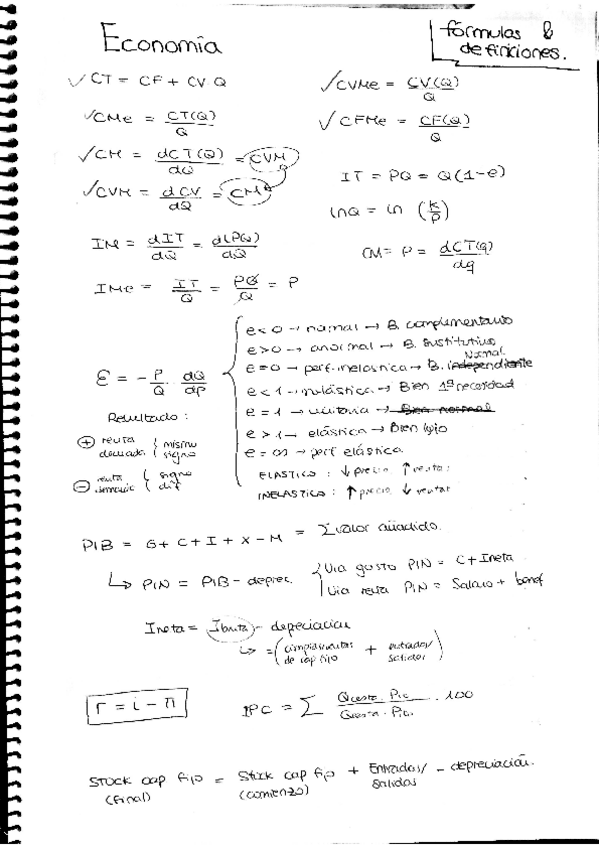 Economía
fórmulas & definiciones.
✓ CT = CF + CV Q
✓ CVMe = CV(Q)/Q
✓ CMe = CT(Q)/Q
✓ CFMe = CF(Q)/Q
✓ CM = dCT(Q)/dQ = CVM
IT = PQ = Q(1-e)
✓ CVM = dCV/dQ = CM
lnQ = ln (K/P)
IM = dIT/dQ = d(PQ)/dQ
CM = P = dCT(q)/dq
IMe = IT/Q = PQ/Q = P
Ɛ = - P/Q · dQ/dP
e < 0 → normal → B. complementario
e > 0 → anormal → B. sustitutivo
e = 0 → perf. inelástica → B. independiente Normal
e < 1 → inelástica → Bien 1ª necesidad
e = 1 → unitaria → Bien normal
e > 1 → elástica → Bien lujo
e = ∞ → perf elástica
ELASTICO : ↓ precio ↑ ventas
INELASTICO : ↑ precio ↓ ventas
Resultado :
⊕ renta demanda { mismo signo
⊖ renta { signo dif
PIB = G + C + I + X - M = Σ valor añadido.
↳ PIN = PIB - deprec.
Via gasto PIN = C + Ineta
Via renta PIN = Salario + benef
Ineta = Ibruta - depreciacion
↳ = ( de cap fijo + entradas/ salidas )
r = i - π
IPC = Σ · 100
Stock cap fijo (final) = Stock cap fijo (comienzo) + Entradas/ salidas - depreciación.